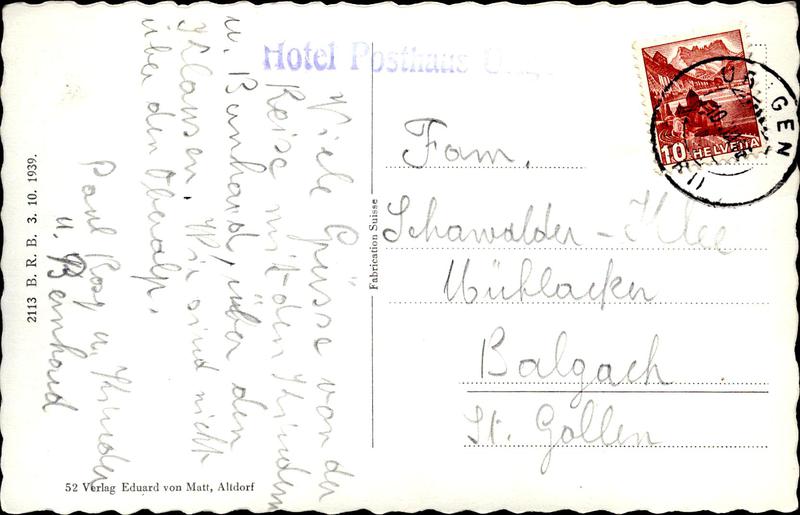 Hotel Posthaus
Viele Grüsse von der
Reise mit den Kindern
u. Bernhard, über den
Klausen. Wir sind nicht
über den Oberalp.
Paul Rosy u. Kinder
u. Bernhard
Fam.
Schawalder-Klee
Mühlacker
Balgach
St. Gallen
10 HELVETIA
Fabrication Suisse
2113 B. R. B. 3. 10. 1939.
52 Verlag Eduard von Matt, Altdorf